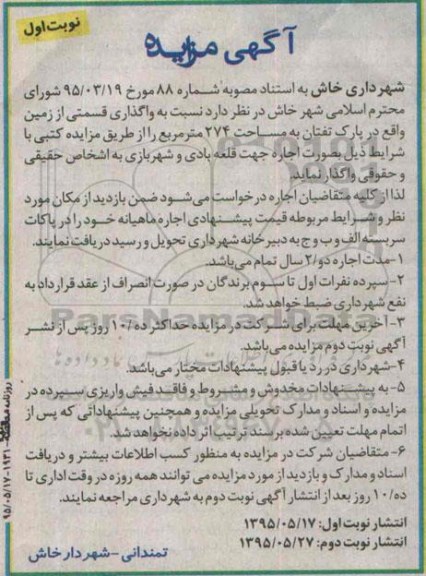 نوبت اول
آگهی مزایده
شهرداری خاش به استناد مصوبه شماره ۸۸ مورخ ۹۵/۰۳/۱۹ شورای
محترم اسلامی شهر خاش در نظر دارد نسبت به واگذاری قسمتی از زمین
واقع در پارک تفتان به مساحت ۲۷۴ مترمربع را از طریق مزایده کتبی با
شرایط ذیل بصورت اجاره جهت قلعه بادی و شهربازی به اشخاص حقیقی
و حقوقی واگذار نماید.
لذا از کلیه متقاضیان اجاره درخواست می‌شود ضمن بازدید از مکان مورد
نظر و شرایط مربوطه قیمت پیشنهادی اجاره ماهیانه خود را در پاکات
سربسته الف و ب و ج به دبیرخانه شهرداری تحویل و رسید دریافت نمایند.
۱-مدت اجاره دو/۲ سال تمام می‌باشد.
۲- سپرده نفرات اول تا سوم برندگان در صورت انصراف از عقد قرارداد به
نفع شهرداری ضبط خواهد شد.
۳- آخرین مهلت برای شرکت در مزایده حداکثر ده /۱۰ روز پس از نشر
آگهی نوبت دوم مزایده می‌باشد.
۴-شهرداری در رد یا قبول پیشنهادات مختار می‌باشد.
۵- به پیشنهادات مخدوش و مشروط و فاقد فیش واریزی سپرده در
مزایده و اسناد و مدارک تحویلی مزایده و همچنین پیشنهاداتی که پس از
اتمام مهلت تعیین شده برسند ترتیب اثر داده نخواهد شد.
۶- متقاضیان شرکت در مزایده به منظور کسب اطلاعات بیشتر و دریافت
اسناد و مدارک و بازدید از مورد مزایده می توانند همه روزه در وقت اداری تا
ده/۱۰ روز بعد از انتشار آگهی نوبت دوم به شهرداری مراجعه نمایند.
انتشار نوبت اول: ۱۳۹۵/۰۵/۱۷
انتشار نوبت دوم: ۱۳۹۵/۰۵/۲۷
تمندانی-شهردار خاش
ParsNamadData
روزنامه
۹۵/۰۵/۱۷-۱۹۳۱